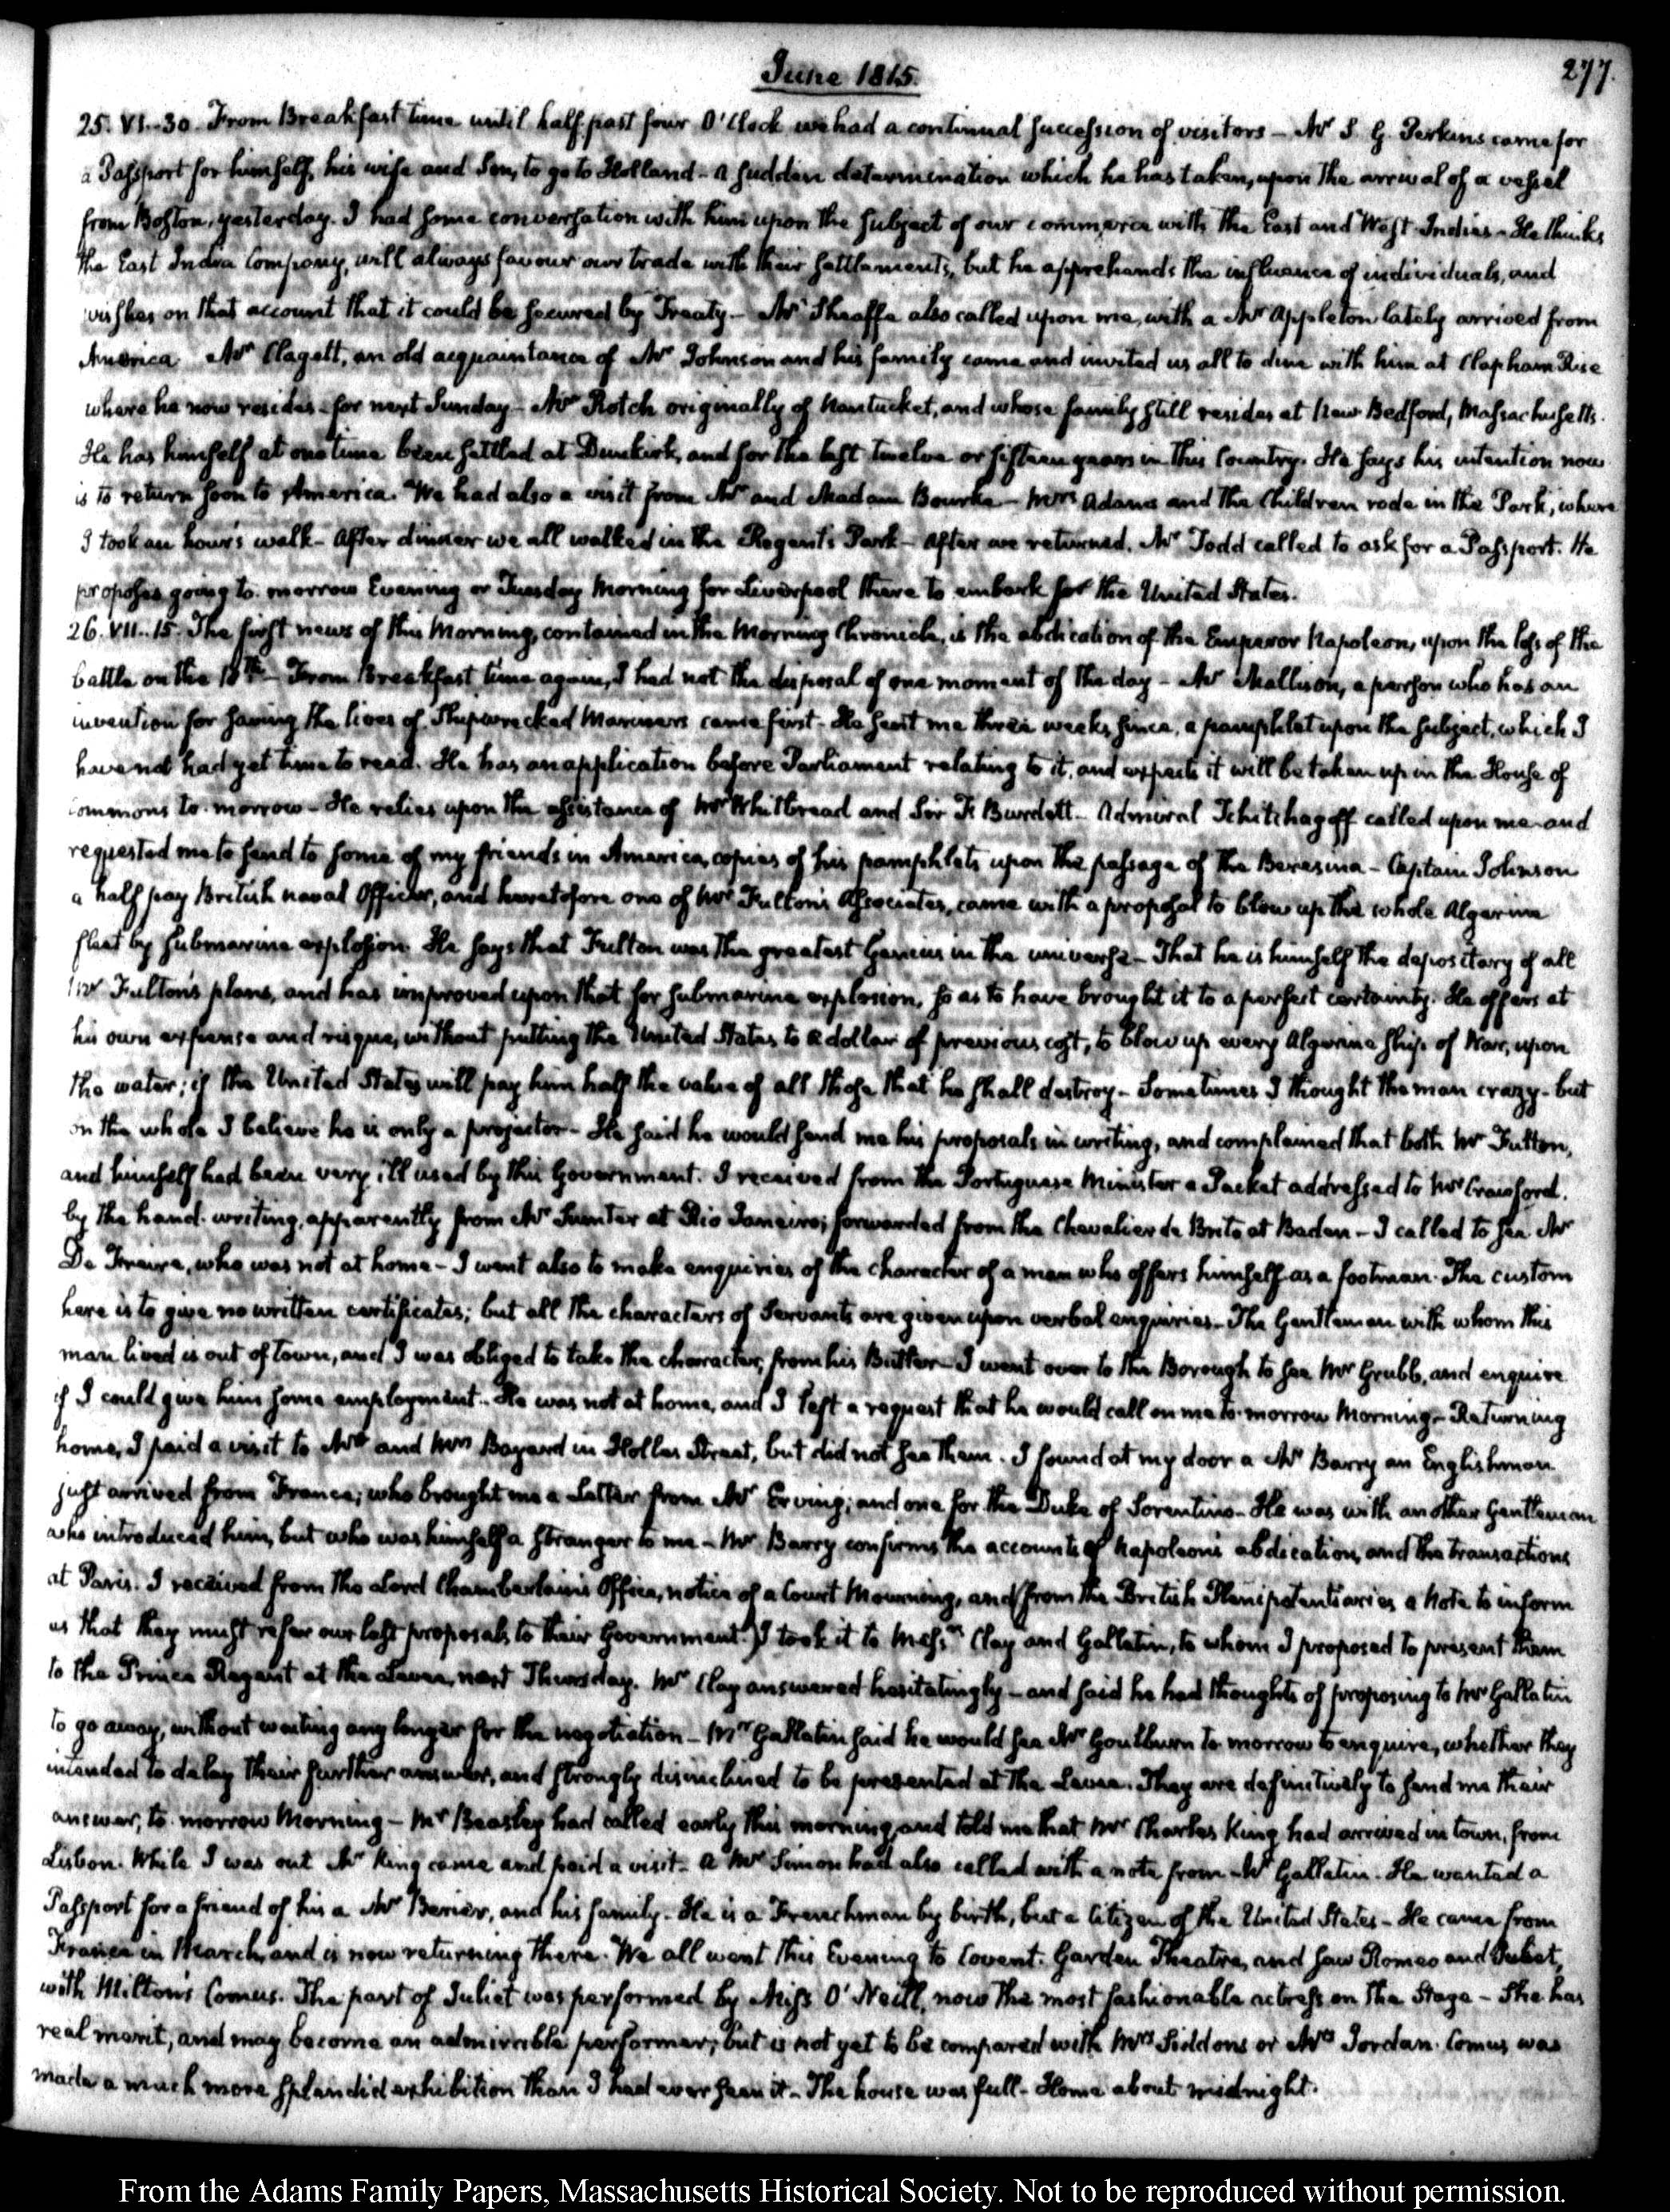 June 1815.
277.
25. VI..30. From Breakfast time until half past four O'Clock we had a continual succession of visitors – Mr S. G Perkins came for
a Passport for himself, his wife and Son, to go to Holland – a sudden determination which he has taken, upon the arrival of a vessel
from Boston, yesterday. I had some conversation with him upon the subject of our commerce with the East and West-Indies – He thinks
the East India Company, will always favour our trade with their settlements, but he apprehends the influence of individuals, and
wishes on that account that it could be secured by Treaty – Mr Sheaffe also called upon me, with a Mr Appleton lately arrived from
America. Mr Clagett, an old acquaintance of Mr Johnson and his family came and invited us all to dine with him at Clapham Rise
where he now resides – for next Sunday – Mr Rotch originally of Nantucket, and whose family still resides at New Bedford, Massachusetts.
He has himself at one time been settled at Dunkirk, and for the last twelve or fifteen years in this Country. He says his intention now
is to return soon to America. We had also a visit from Mr and Madam Bourke – Mrs Adams and the Children rode in the Park, where
I took an hour's walk – After dinner we all walked in the Regent's Park – After we returned, Mr Todd called to ask for a Passport. He
proposes going to-morrow Evening or Tuesday Morning for Liverpool there to embark for the United States.
26. VII..15. The first news of this Morning, contained in the Morning Chronicle, is the abdication of the Emperor Napoleon, upon the loss of the
battle on the 18th – From Breakfast time again, I had not the disposal of one moment of the day – Mr Mallison, a person who has an
invention for saving the lives of Shipwrecked Mariners came first – He sent me three weeks since, a pamphlet upon the subject, which I
have not had yet time to read. He has an application before Parliament relating to it, and expects it will be taken up in the House of
Commons to-morrow – He relies upon the assistance of Mr Whitbread and Sir F. Burdett – Admiral Tchitchagoff called upon me and
requested me to send to some of my friends in America, copies of his pamphlets upon the passage of the Beresina – Captain Johnson
a half pay British naval Officer, and heretofore one of Mr Fulton's Associates, came with a proposal to blow up the whole Algerine
fleet by submarine explosion. He says that Fulton was the greatest Genius in the universe – That he is himself the depositary of all
Mr Fulton's plans, and has improved upon that for submarine explosion, so as to have brought it to a perfect certainty. He offers at
his own expense and risque, without putting the United States to a dollar of previous cost, to blow up every Algerine ship of War, upon
the water; if the United States will pay him half the value of all those that he shall destroy – Sometimes I thought the man crazy – but
on the whole I believe he is only a projector – He said he would send me his proposals in writing, and complained that both Mr Fulton,
and himself had been very ill used by this Government. I received from the Portuguese Minister a Packet addressed to Mr Crawford.
by the hand-writing, apparently from Mr Sumter at Rio Janeiro; forwarded from the Chevalier de Brito at Baden – I called to see Mr
De Freire, who was not at home – I went also to make enquiries of the character of a man who offers himself as a footman. The custom
here is to give no written certificates; but all the characters of Servants are given upon verbal enquiries – The Gentleman with whom this
man lived is out of town, and I was obliged to take the character, from his Butler – I went over to the Borough to see Mr Grubb, and enquire
if I could give him some employment – He was not at home, and I left a request that he would call on me to-morrow Morning – Returning
home, I paid a visit to Mr and Mrs Bayard in Holles Street, but did not see them. I found at my door a Mr Barry an Englishman
just arrived from France; who brought me a Letter from Mr Erving; and one for the Duke of Sorentino – He was with another Gentleman
who introduced him, but who was himself a stranger to me – Mr Barry confirms the accounts of Napoleon's abdication, and the transactions
at Paris. I received from the Lord Chamberlain's Office, notice of a Court Mourning, and from the British Plenipotentiaries a Note to inform
us that they must refer our last proposals to their Government. I took it to Messrs Clay and Gallatin, to whom I proposed to present them
to the Prince Regent at the Levee, next Thursday. Mr Clay answered hesitatingly – and said he had thoughts of proposing to Mr Gallatin
to go away, without waiting any longer for the negotiation – Mr Gallatin said he would see Mr Goulburn to-morrow to enquire, whether they
intended to delay their further answer, and strongly disinclined to be presented at the Levee. They are definitively to send me their
answer, to-morrow Morning – Mr Beasley had called early this morning, and told me that Mr Charles King had arrived in town, from
Lisbon. While I was out Mr King came and paid a visit – a Mr Simon had also called with a note from Mr Gallatin. He wanted a
Passport for a friend of his a Mr Berier, and his family. He is a Frenchman by birth, but a Citizen of the United States – He came from
France in March, and is now returning there. We all went this Evening to Covent-Garden Theatre, and saw Romeo and Juliet,
with Milton's Comus. The part of Juliet was performed by Miss O'Neill, now the most fashionable actress on the Stage – She has
real merit, and may become an admirable performer; but is not yet to be compared with Mrs Siddons or Mrs Jordan. Comus was
made a much more splendid exhibition than I had ever seen it – The house was full – Home about midnight.
From the Adams Family Papers, Massachusetts Historical Society. Not to be reproduced without permission.